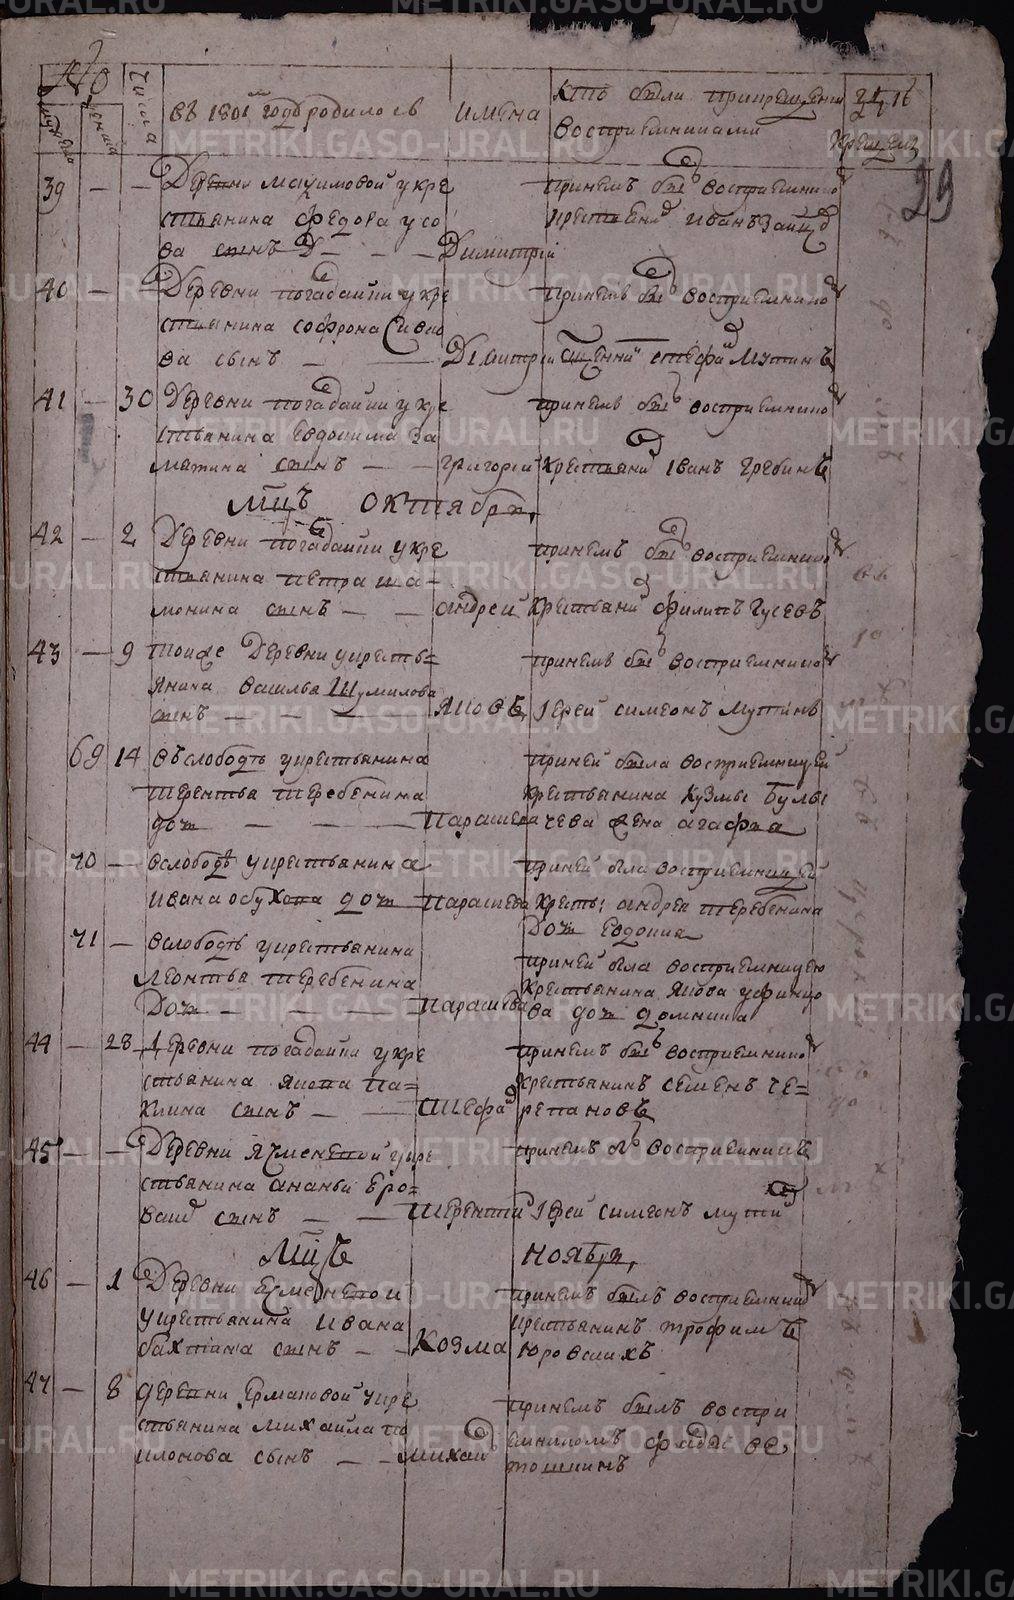 №
числа
въ 1801 годъ родилось
имена
кто были при крещении
восприемниками
29
39 — — Деревни Макимовой у кре
стьянина Федора Усо
ва сынъ — — — Димитрій
при немъ былъ восприемнико
крестьянинъ Иванъ Зайцъ
40 — — Деревни Погадайки у кре
стьянина Софрона Сиво
ва сынъ — — Димитрій
при немъ былъ восприемнико
Стефанъ Мутинъ
41 — 30 Деревни Погадайки у кре
стьянина Евдокима За
мятина сынъ — — Григорей
при немъ былъ восприемнико
крестьянинъ Иванъ Гребинъ
Мцъ октября,
42 — 2 Деревни Погадайки у кре
стьянина Петра Ша-
монина сынъ — — Андрей
при немъ былъ восприемнико
крестьянинъ Филипъ Гусевъ
43 — 9 Тоюже Деревни у кресть=
янина Василья Шумилова
сынъ — — — Яковъ,
при немъ былъ восприемнико
Іерей Симеонъ Мутинъ
69 14 въ слободѣ у крестьянина
Терентья Теребенина
дочь — — — Параскева
при ней была восприемницей
крестьянина Кузмы Булы
чева жена Агафья
70 — в слободѣ у крестьянина
Ивана Обухова дочь Параскева
при ней была восприемницей
Кресть: Андрея Теребенина
дочь Евдокия
71 — в слободѣ у крестьянина
Леонтья Теребенина
дочь — — — Параскева
при ней была восприемницею
крестьянина Якова Уфинцо
ва дочь Домника
44 — 28 Деревни Погадайки у кре
стьянина Якова Па=
хлина сынъ — — Стефанъ
при немъ былъ восприемнико
крестьянинъ Семенъ Че=
репановъ
45 — — Деревни Ячменевой у кре
стьянина Ананьи Бро=
вина сынъ — — Терентій
при немъ былъ восприемникъ
Іерей Симеонъ Мутинъ
Мцъ ноября,
46 — 1 Деревни Ячменевой
у крестьянина Ивана
Бахтина сынъ — — Козма
при немъ былъ восприемник
крестьянинъ Трофимъ
Юровскихъ
47 — 8 Деревни Ермаковой у кре
стьянина Михайла По
илонова сынъ — — Михаил
при немъ былъ воспри
емникомъ Фадѣй Ве
тошкинъ
METRIKI.GASO-URAL.RU